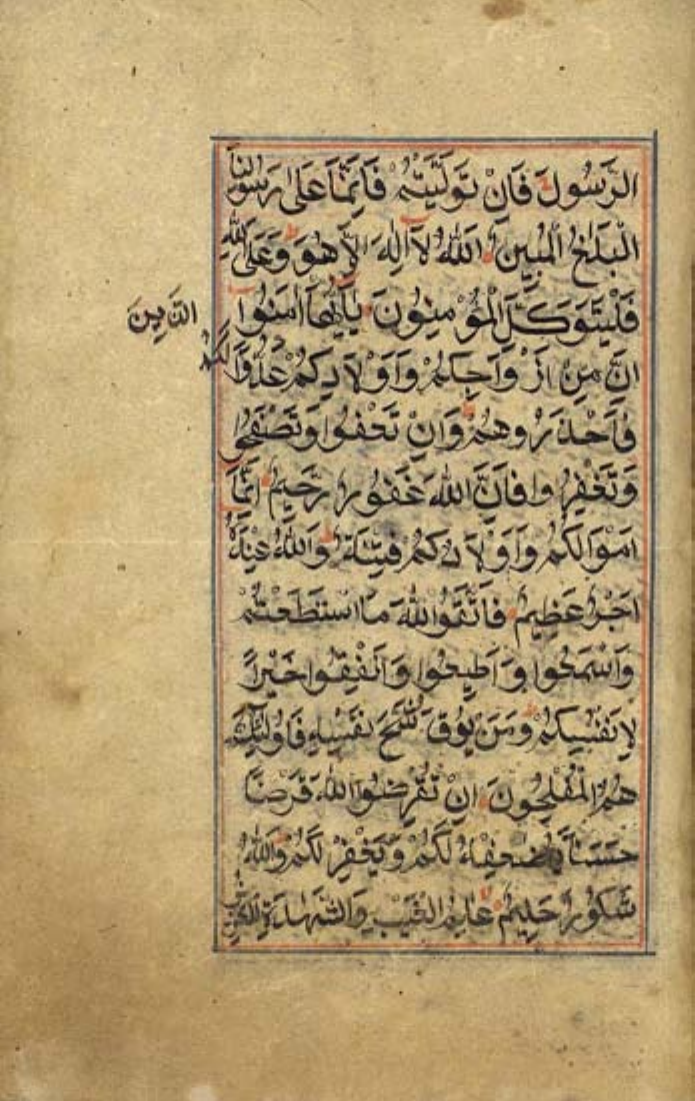 الرَّسُولَ فَاِنْ تَوَلَّيْتُمْ فَاِنَّمَا عَلٰى رَسُولِنَا
الْبَلٰغُ الْمُبِينُ اَللّٰهُ لَآ اِلٰهَ اِلَّا هُوَ وَعَلَى اللّٰهِ
فَلْيَتَوَكَّلِ الْمُؤْمِنُونَ يٰٓاَيُّهَا اٰمَنُوٓا
الَّذِينَ
اِنَّ مِنْ اَزْوَاجِكُمْ وَاَوْلَادِكُمْ عَدُوًّا لَكُمْ
فَاحْذَرُوهُمْ وَاِنْ تَعْفُوا وَتَصْفَحُوا
وَتَغْفِرُوا فَاِنَّ اللّٰهَ غَفُورٌ رَحِيمٌ اِنَّمَا
اَمْوَالُكُمْ وَاَوْلَادُكُمْ فِتْنَةٌ وَاللّٰهُ عِنْدَهُ
اَجْرٌ عَظِيمٌ فَاتَّقُوا اللّٰهَ مَا اسْتَطَعْتُمْ
وَاسْمَعُوا وَاَطِيعُوا وَاَنْفِقُوا خَيْرًا
لِاَنْفُسِكُمْ وَمَنْ يُوقَ شُحَّ نَفْسِهِ فَاُولٰٓئِكَ
هُمُ الْمُفْلِحُونَ اِنْ تُقْرِضُوا اللّٰهَ قَرْضًا
حَسَنًا يُضٰعِفْهُ لَكُمْ وَيَغْفِرْ لَكُمْ وَاللّٰهُ
شَكُورٌ حَلِيمٌ عَالِمُ الْغَيْبِ وَالشَّهَادَةِ